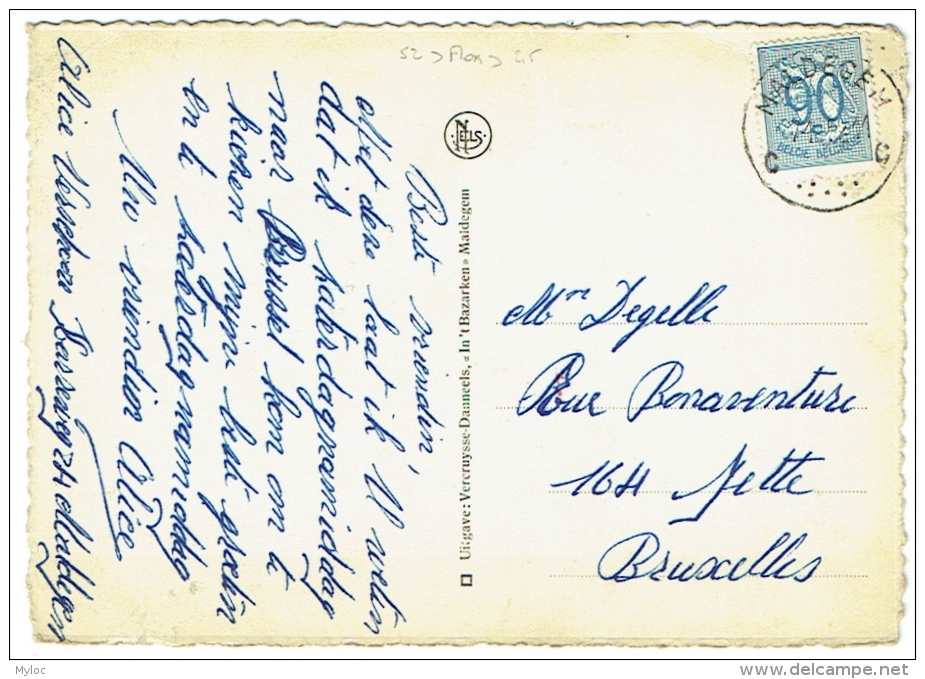 52 > Flor > 2,5
MALDEGEM
90
BELGIE BELGIQUE
C C
NELS
Beste vriendin,
Met deze laat ik U weten
dat ik zaterdagnamiddag
naar Brussel kom om te
kiezen mijne beste groeten
en te zaterdagnamiddag
Uw vriendin Alice
Alice
Maldegem
Uitgave: Vercruysse-Danneels, « In 't Bazarken » Maldegem
Mme Degelle
Rue Bonaventure
164 Jette
Bruxelles
Myloc
www.delcampe.net